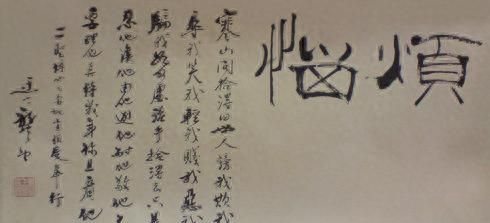 煩惱
寒山问拾得曰世人謗我欺我
辱我笑我輕我賤我惡我
騙我如何處治乎拾得云只
忍他讓他由他避他耐他敬他不
要理他再待幾年你且看他